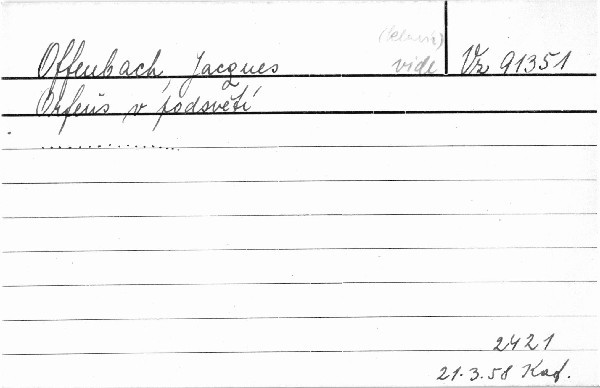 Offenbach, Jacques vide Vz 91351
Orfeus v podsvětí
..................
2421
21.3.58 Kaf.